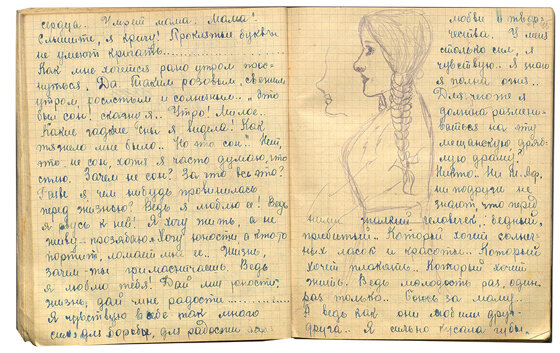 сердца. Умрет мама. Мама!
Слышите, я кричу! Проклятые буквы
не умеют кричать...
Как мне хочется рано утром прос-
нуться. Да. Таким розовым, свежим
утром, росистым и солнечным.. "Это
был сон! скажу я.. Утро! Милое..
Какие гадкие сны я видела! Как
тяжело мне было.. Но это сон.." Нет,
это не сон, хотя я часто думаю, что
сплю. Зачем не сон? За что все это?
Разве я чем нибудь провинилась
перед жизнью? Ведь я люблю ее! Ведь
я рвусь к ней! Я хочу жить, а не
живу - прозябаю. Хочу юности а кто-то
портит, ломает мне ее.. Жизнь,
зачем ты приласкаешь. Ведь
я люблю тебя! Дай мне юность,
жизнь, дай мне радости...
Я чувствую в себе так много
сил для борьбы, для радости
любви и твор-
чества. У меня
столько сил, я
чувствую.. Я знаю
я полна огня..
Для чего же я
должна размени-
ваться на эту
мещанскую, дряб-
лую драму?
Никто. Ни
ни подруги не
знают, что перед
ними жалкий человечек, бедный,
прибитый.. Который хочет солнеч-
ных ласок и красоты.. Который
хочет плакать.. Который хочет
жить. Ведь молодость раз, один
раз только.. Боюсь за маму..
А ведь как они любили друг-
друга.. Я сильно кусала губы.